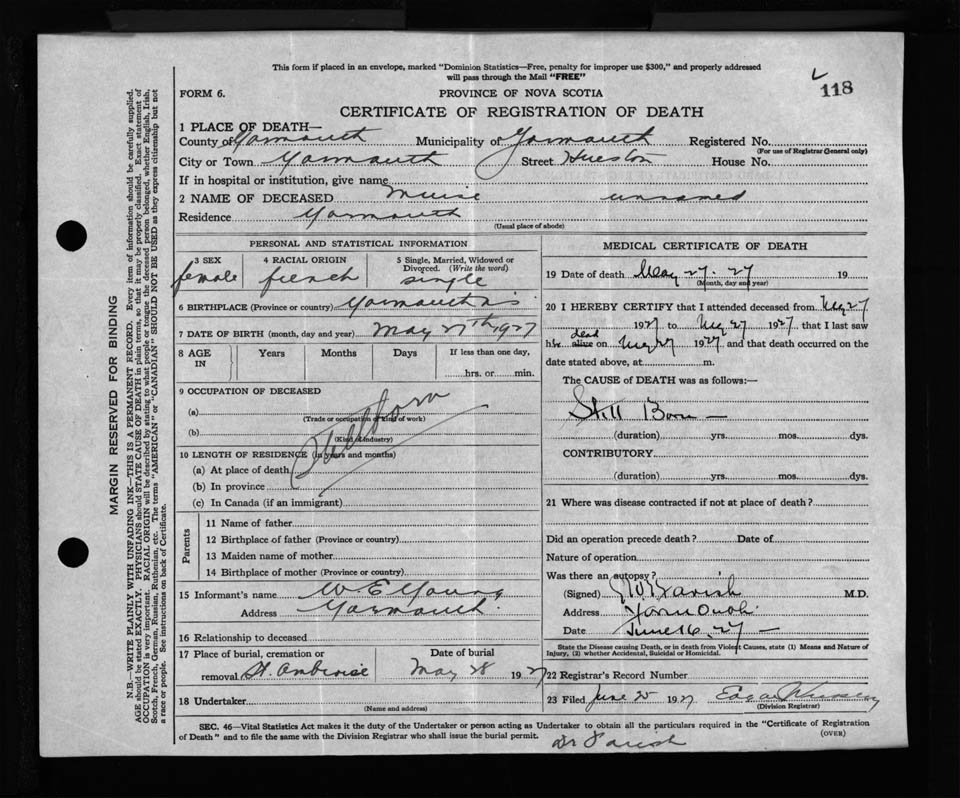 This form if placed in an envelope, marked "Dominion Statistics—Free, penalty for improper use $300," and properly addressed
will pass through the Mail "FREE"
118
FORM 6.
PROVINCE OF NOVA SCOTIA
CERTIFICATE OF REGISTRATION OF DEATH
1 PLACE OF DEATH—
County of Yarmouth Municipality of Yarmouth Registered No.
(For use of Registrar General only)
City or Town Yarmouth Street Hueston House No.
If in hospital or institution, give name
2 NAME OF DECEASED Muise unnamed
Residence Yarmouth
(Usual place of abode)
PERSONAL AND STATISTICAL INFORMATION
3 SEX 4 RACIAL ORIGIN 5 Single, Married, Widowed or
Divorced. (Write the word)
female french single
6 BIRTHPLACE (Province or country) Yarmouth N.S
7 DATE OF BIRTH (month, day and year) May 27th 1927
8 AGE IN Years Months Days If less than one day,
hrs. or min.
9 OCCUPATION OF DECEASED
(a)
(Trade or occupation or kind of work)
(b)
(Kind of Industry)
Stillborn
10 LENGTH OF RESIDENCE (In years and months)
(a) At place of death
(b) In province
(c) In Canada (if an immigrant)
Parents
11 Name of father
12 Birthplace of father (Province or country)
13 Maiden name of mother
14 Birthplace of mother (Province or country)
15 Informant's name W. E. Young
Address Yarmouth
16 Relationship to deceased
17 Place of burial, cremation or Date of burial
removal St. Ambroise May 28 1927
18 Undertaker
(Name and address)
MEDICAL CERTIFICATE OF DEATH
19 Date of death May 27. 27 19
(Month, day and year)
20 I HEREBY CERTIFY that I attended deceased from May 27
1927 to May 27 1927 that I last saw
dead
h alive on May 27 1927 and that death occurred on the
date stated above, at m.
The CAUSE of DEATH was as follows:—
Still Born —
(duration) yrs. mos. dys.
CONTRIBUTORY
(duration) yrs. mos. dys.
21 Where was disease contracted if not at place of death?
Did an operation precede death? Date of
Nature of operation
Was there an autopsy?
(Signed) Parish M.D.
Address Yarmouth
Date June 16. 27 —
State the Disease causing Death, or in death from Violent Causes, state (1) Means and Nature of
Injury, (2) whether Accidental, Suicidal or Homicidal.
22 Registrar's Record Number
23 Filed June 25 1927 Edgar
(Division Registrar)
SEC. 46—Vital Statistics Act makes it the duty of the Undertaker or person acting as Undertaker to obtain all the particulars required in the "Certificate of Registration
of Death" and to file the same with the Division Registrar who shall issue the burial permit.
(OVER)
Dr Parish
MARGIN RESERVED FOR BINDING
N.B.—WRITE PLAINLY WITH UNFADING INK—THIS IS A PERMANENT RECORD. Every item of information should be carefully supplied.
AGE should be stated EXACTLY. PHYSICIANS should STATE CAUSE OF DEATH in plain terms, so that it may be properly classified. Exact statement of
OCCUPATION is very important. RACIAL ORIGIN will be described by stating to what people or tongue the deceased person belonged, whether English, Irish,
Scotch, French, German, Russian, Ruthenian, etc. The terms "AMERICAN" or "CANADIAN" SHOULD NOT BE USED as they express citizenship but not
a race or people. See instructions on back of Certificate.